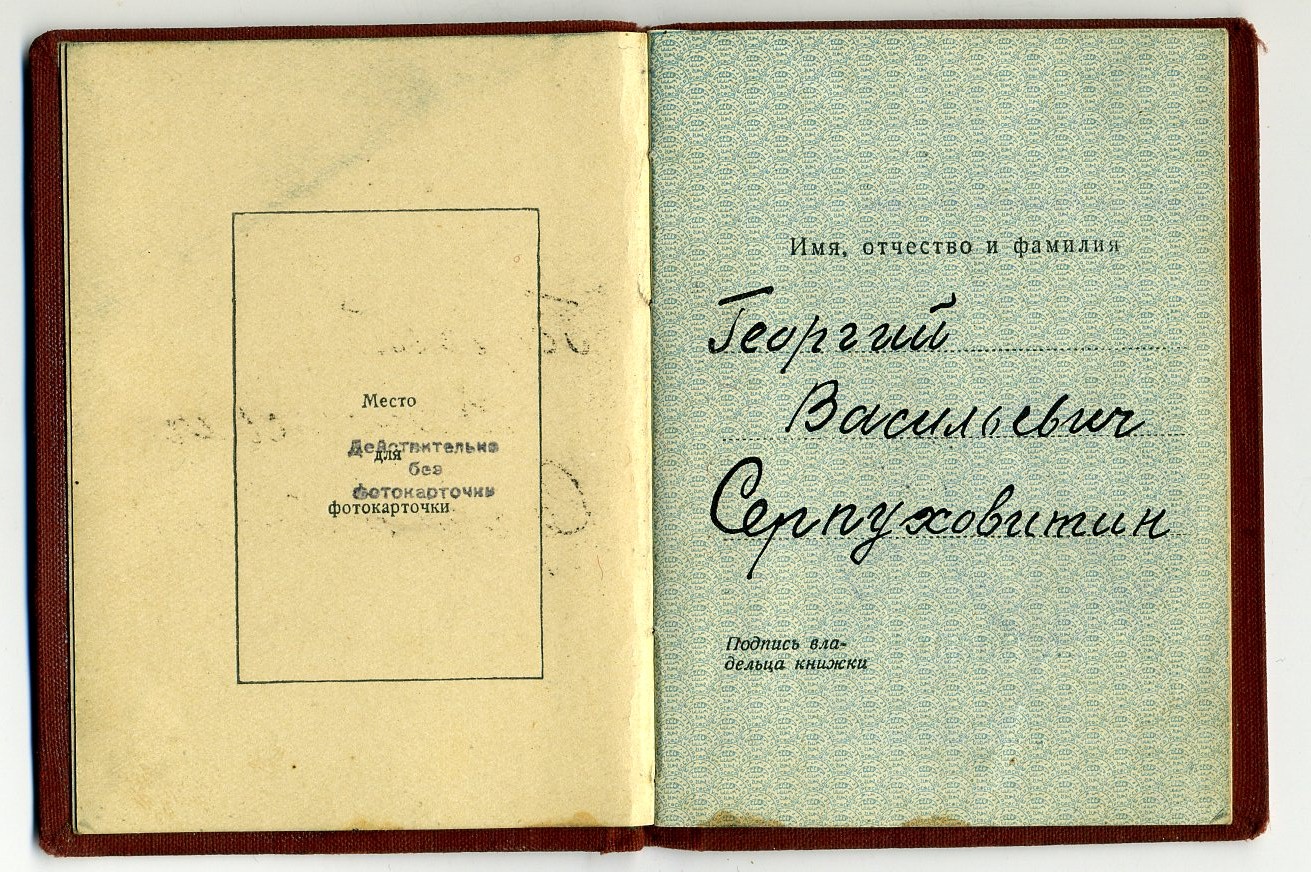 Место
для
фотокарточки
Действительно
без
фотокарточки
Имя, отчество и фамилия
Георгий
Васильевич
Серпуховитин
Подпись вла-
дельца книжки